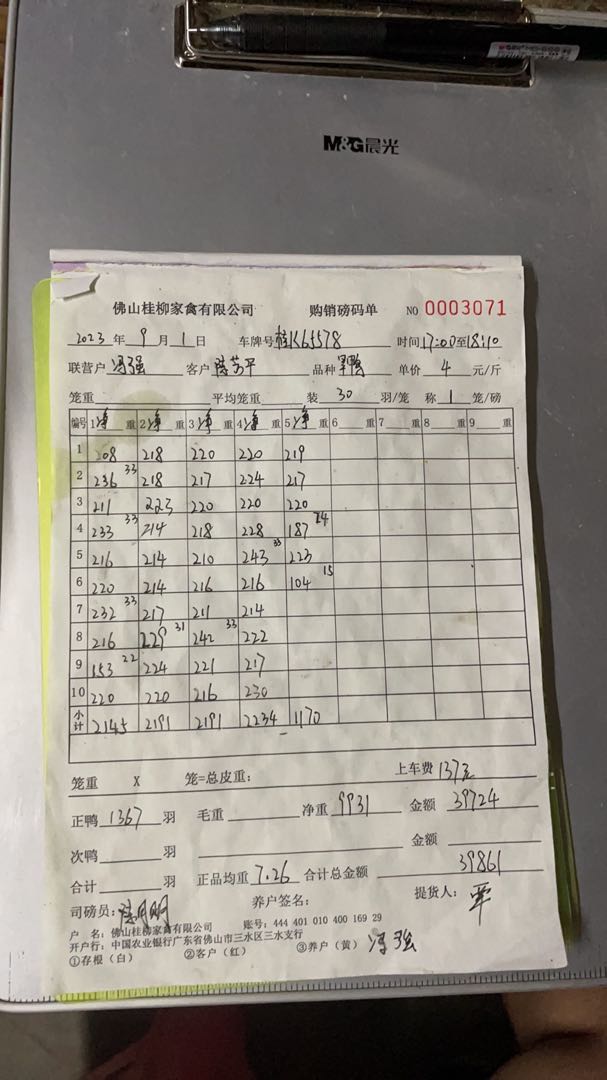 M&G晨光
佛山桂柳家禽有限公司 购销磅码单 NO 0003071
2023 年 9 月 1 日 车牌号 桂K65578 时间 17:00至18:10
联营户 冯强 客户 陈苏平 品种 单价 4 元/斤
笼重 平均笼重 装 30 羽/笼 称 1 笼/磅
编号 1净重 2净重 3净重 4净重 5净重 6 重 7 重 8 重 9 重
1 208 218 220 220 219
2 236 33 218 217 224 217
3 211 223 220 220 220
4 233 33 214 218 228 187 24
5 216 214 210 243 33 223
6 220 214 216 216 104 15
7 232 33 217 211 214
8 216 229 31 242 33 222
9 153 22 224 221 217
10 220 220 216 230
小计 2145 2191 2191 2234 1170
笼重 X 笼=总皮重: 上车费 137元
正鸭 1367 羽 毛重 净重 9931 金额 39724
次鸭 羽 金额
合计 羽 正品均重 7.26 合计总金额 39861
司磅员: 养户签名: 提货人:
户 名: 佛山桂柳家禽有限公司 账号: 444 401 010 400 169 29
开户行: 中国农业银行广东省佛山市三水区三水支行
①存根（白） ②客户（红） ③养户（黄） 冯强